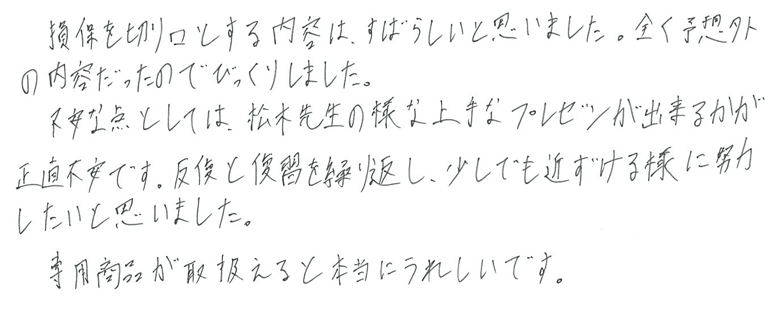 損保を切り口とする内容は、すばらしいと思いました。全く予想外
の内容だったのでびっくりしました。
不安な点としては、松木先生の様な上手なプレゼンが出来るかが
正直不安です。反復と復習を繰り返し、少しでも近ずける様に努力
したいと思いました。
専用商品が取扱えると本当にうれしいです。